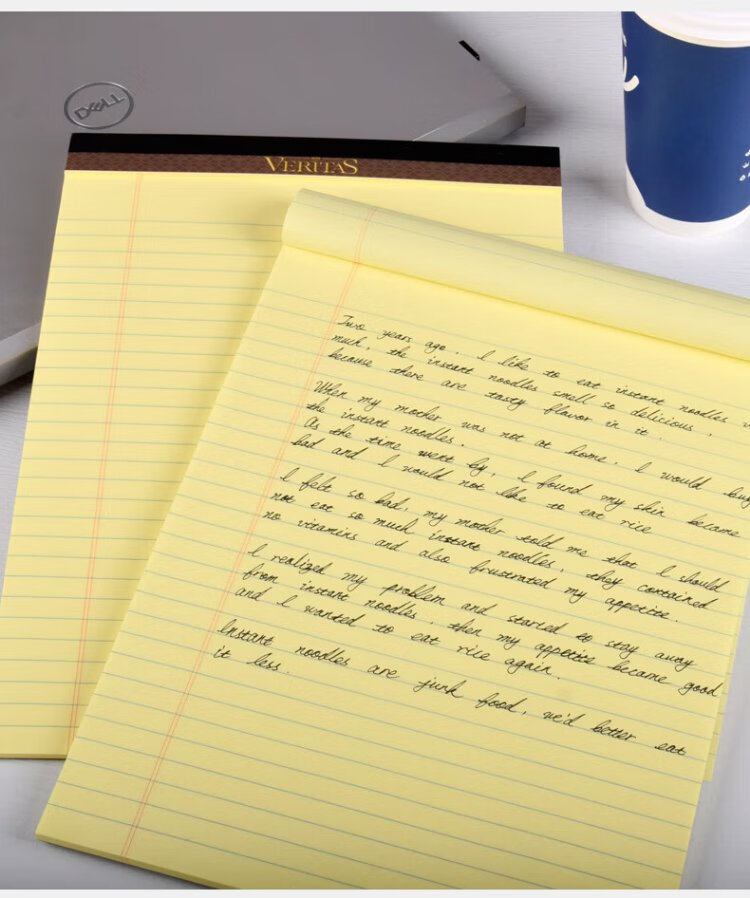 DELL
VERITAS
Two years ago, I like to eat instant noodles
much, the instant noodles smell so delicious,
because there are tasty flavor in it.
When my mother was not at home, I would buy
the instant noodles.
As the time went by, I found my skin became
bad and I would not like to eat rice
I felt so bad, my mother told me that I should
not eat so much instant noodles, they contained
no vitamins and also frustrated my appetite.
I realized my problem and started to stay away
from instant noodles, then my appetite became good
and I wanted to eat rice again.
Instant noodles are junk food, we'd better eat
it less.